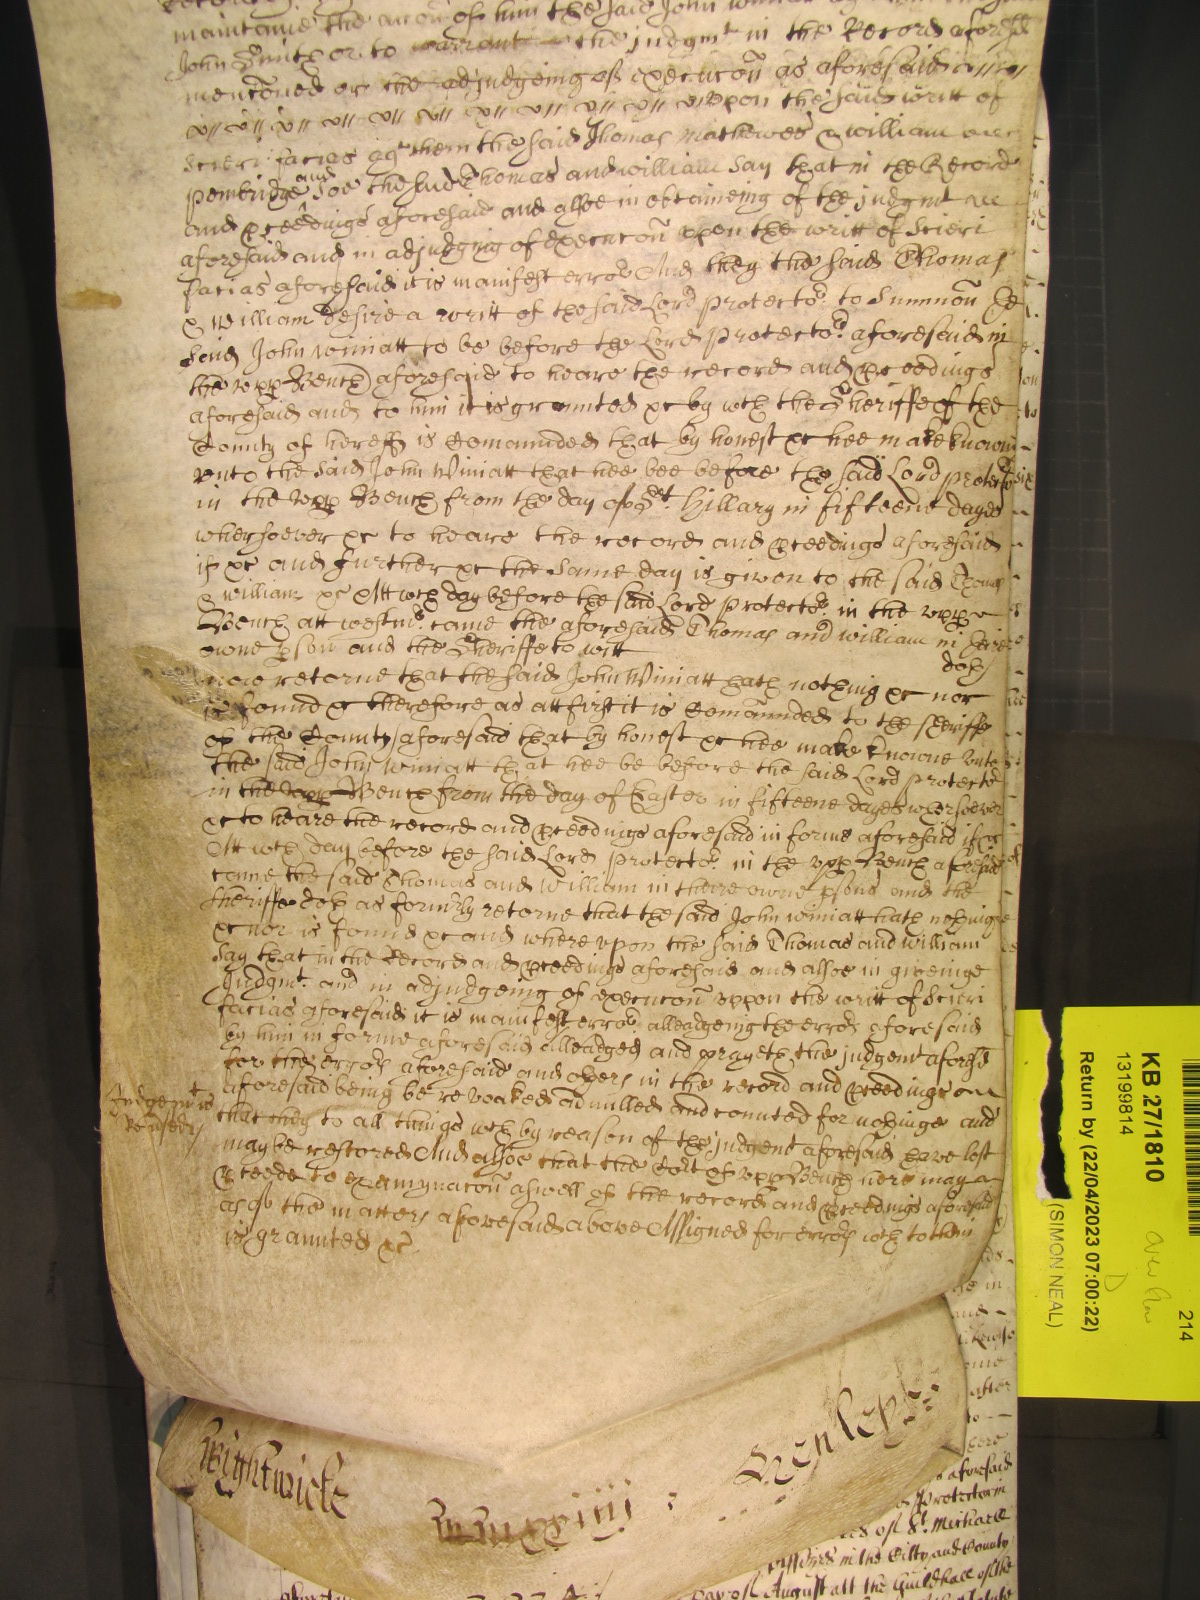 maintaine the accon of him the said John Winiatt
John Smith or to warrant the judgmt in the Record aforesd
mencõned or the adjudgeing of execucon as aforesaid
upon the said writt of
Scieri facias agt them the said Thomas Mathewes & William
Pembridge and Soe the said Thomas and William Say that in the Record
and pceedings aforesaid and alsoe in obteineing of the judgmt
aforesaid and in adjudging of execucon upon the writt of Scieri
facias aforesaid it is manifest error And they the said Thomas
& William desire a writt of the said Lord Protector to Summon the
said John Winiatt to be before the Lord Protector aforesaid in
the upp Bench aforesaid to heare the record and pceedings
aforesaid and to him it is graunted &c by wch the Sheriffe of the
County of Hereff is Comaunded that by honest &c hee make knowne
unto the said John Winiatt that hee bee before the said Lord protector
in the upp Bench from the day of St. Hillary in fifteene dayes
whersoever &c to heare the record and pceedings aforesaid
if &c and further &c the Same day is given to the said Thomas
& William &c Att wch day before the said Lord Protector in the upp
Bench att Westmr. came the aforesaid Thomas and William in their
owne pson and the Sheriffe to witt
doth
now retorne that the said John Winiatt hath nothing &c nor
is found &c therefore as att first it is Comaunded to the Sheriffe
of the County aforesaid that by honest &c hee make knowne unto
the said John Winiatt that hee be before the said Lord protector
in the upp Bench from the day of Easter in fifteene dayes whersoever
&c to heare the record and pceedings aforesaid in forme aforesaid if &c
Att wch day before the said Lord protector in the upp Bench aforesaid
came the said Thomas and William in there owne psons and the
Sheriffe doth as formrly retorne that the said John Winiatt hath nothinge
&c nor is found &c and where upon the said Thomas and William
Say that in the Record and pceedings aforesaid and alsoe in giveinge
Judgmt. and in adjudgeing of execucon uppon the writt of Scieri
facias aforesaid it is manifest error alleadgeing the error aforesaid
by him in forme aforesaid alleadged and prayeth the judgemt aforesd
for the errors aforesaid and others in the record and pceedings
aforesaid being be revoaked adnulled and counted for nothinge and
Judgemt is
Reversed
that they to all things wch by reason of the judgemt aforesaid have lost
may be restored And alsoe that the Cort of upp Bench here may
pceede to examynacon aswell of the record and pceedings aforesaid
as of the matters aforesaid above Assigned for errors wch to them
is graunted &c
Wightwicke
Henley
of St. Michaell
in the Citty and County
of August att the Guildhall of the
KB 27/1810
13199814
Return by (22/04/2023 07:00:22)
(SIMON NEAL)
214